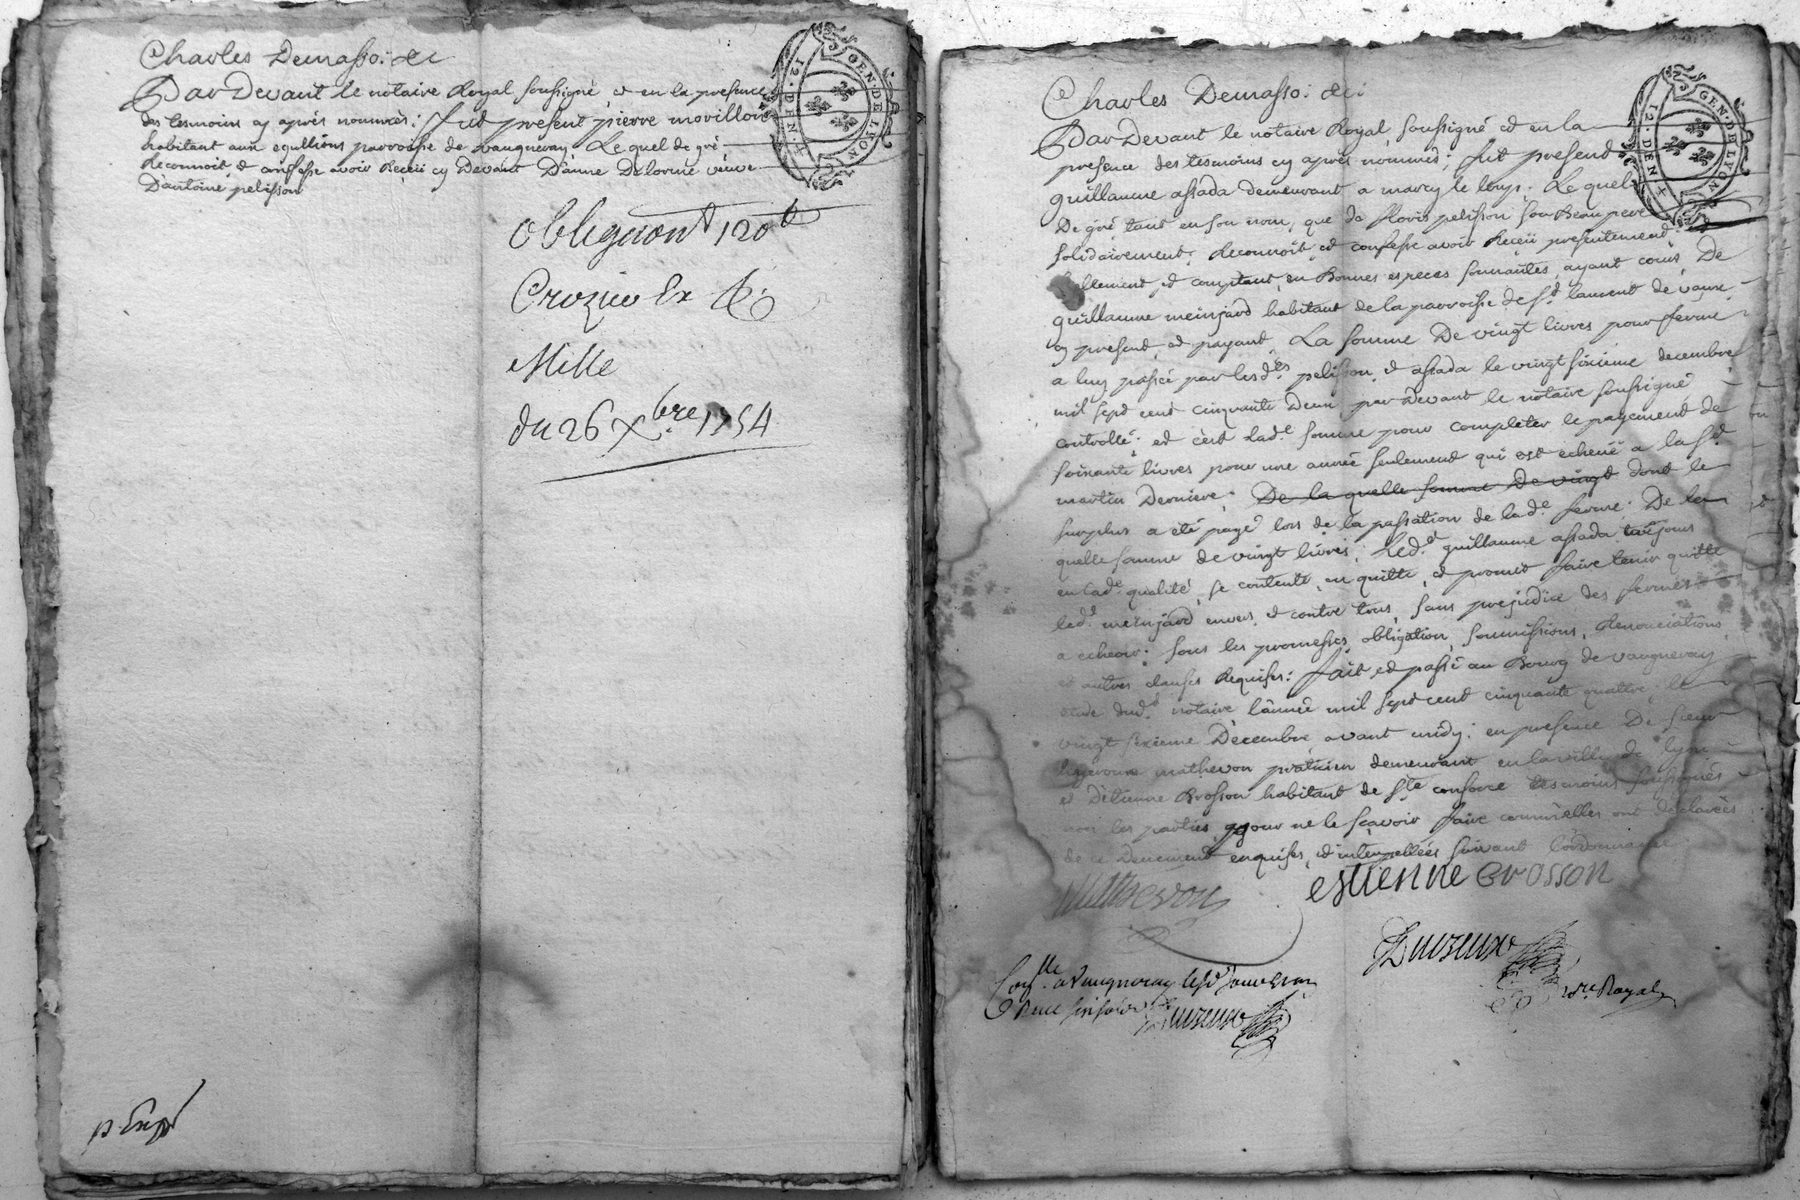 Charles Demasso: &c
Par Devant le notaire Royal soussigné, et en la presence
des tesmoins cy aprés nommés; fut present pierre morillon
habitant aux eguillions parroisse de vaugneray. Le quel de gré
Reconnoit & confesse avoir Receü cy Devant D'anne Delorme veuve
D'antoine pelisson
GEN·DE·LYON
12·DEN·
obligaõn 120
Crozier
Mille
du 26 Xbre 1754
Charles Demasso: &c:
Par Devant le notaire Royal, soussigné et en la
presence des tesmoins cy aprés nommés; fut present
guillaume assada demeurant a marcy le loup; Le quel
De gré tant en son nom, que de floris pelisson son Beau pere
solidairement, Reconnoit, et confesse avoir Receü presentement
et comptant, en Bonnes especes sonnantes, ayant cours, De
guillaume meinjard habitant de la parroisse de St. laurent de vaux
cy present, et payant, La somme De vingt livres pour ferme
a luy passée par lesds. pelisson, et assada le vingt sixieme decembre
mil sept cent cinquante Deux par devant le notaire soussigné
controllé; et c'est lade. somme pour completer le payement de
soixante livres pour une année seulement qui est echeüe a la St.
martin Derniere; De la quelle somme De vingt dont le
surplus a été payé lors de la passation de lade. ferme; De la
quelle somme de vingt livres; Led. guillaume assada, toujours
en lade. qualité, se contente, en quitte, et promet faire tenir quitte
led. meinjard envers, et contre tous, sans prejudice des fermes
a echeoir; sous les promesses, obligation, soumissions, Renonciations,
et autres clauses Requises; fait et passé au Bourg de vaugneray
etude dud. notaire l'année mil sept cent cinquante quatre, le
vingt sixieme Decembre avant midy; en presence De sieur
hyerome mathevon praticien demeurant en la ville de lyon
et D'etienne Brosson habitant de Ste consorce tesmoins soussignés
non les parties pour ne le sçavoir faire comm'elles ont declarées
de ce Deuement enquises, et interpellées suivant l'ordonnance
Mathevon
estienne Brosson
Conlle. a Vaugneray
Nre. Royal
GEN·DE·LYON
12·DEN·